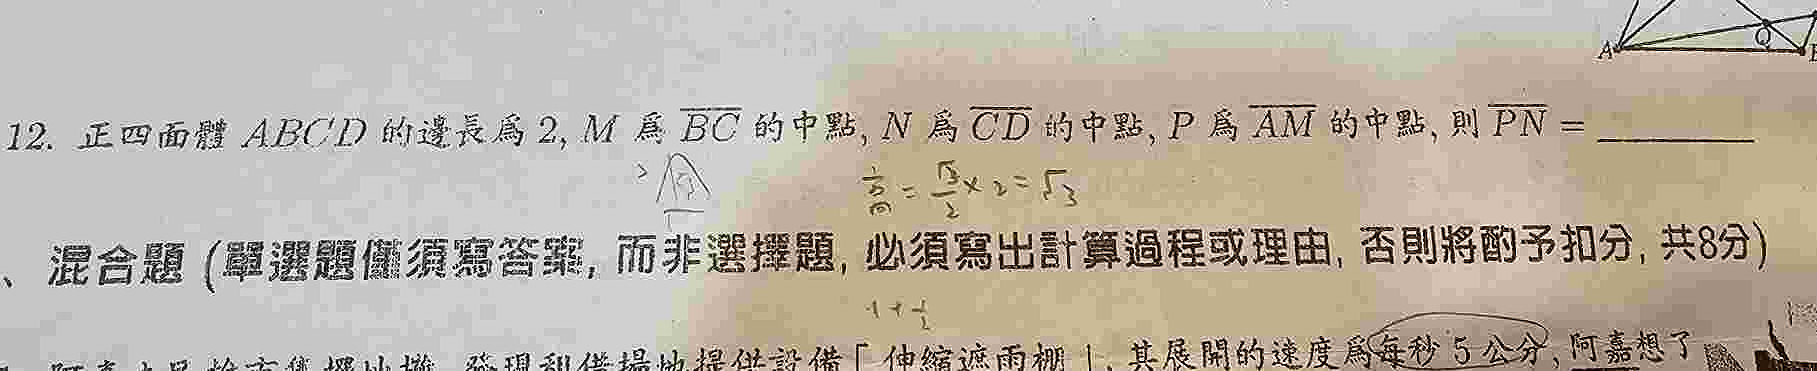 A Q
12. 正四面體 ABCD 的邊長為 2, M 為 BC 的中點, N 為 CD 的中點, P 為 AM 的中點, 則 PN = ______
高 = √3/2 × 2 = √3
、混合題 (單選題僅須寫答案, 而非選擇題, 必須寫出計算過程或理由, 否則將酌予扣分, 共8分)
發現到借場地提供設備「伸縮遮雨棚」, 其展開的速度為每秒 5 公分, 阿嘉想了